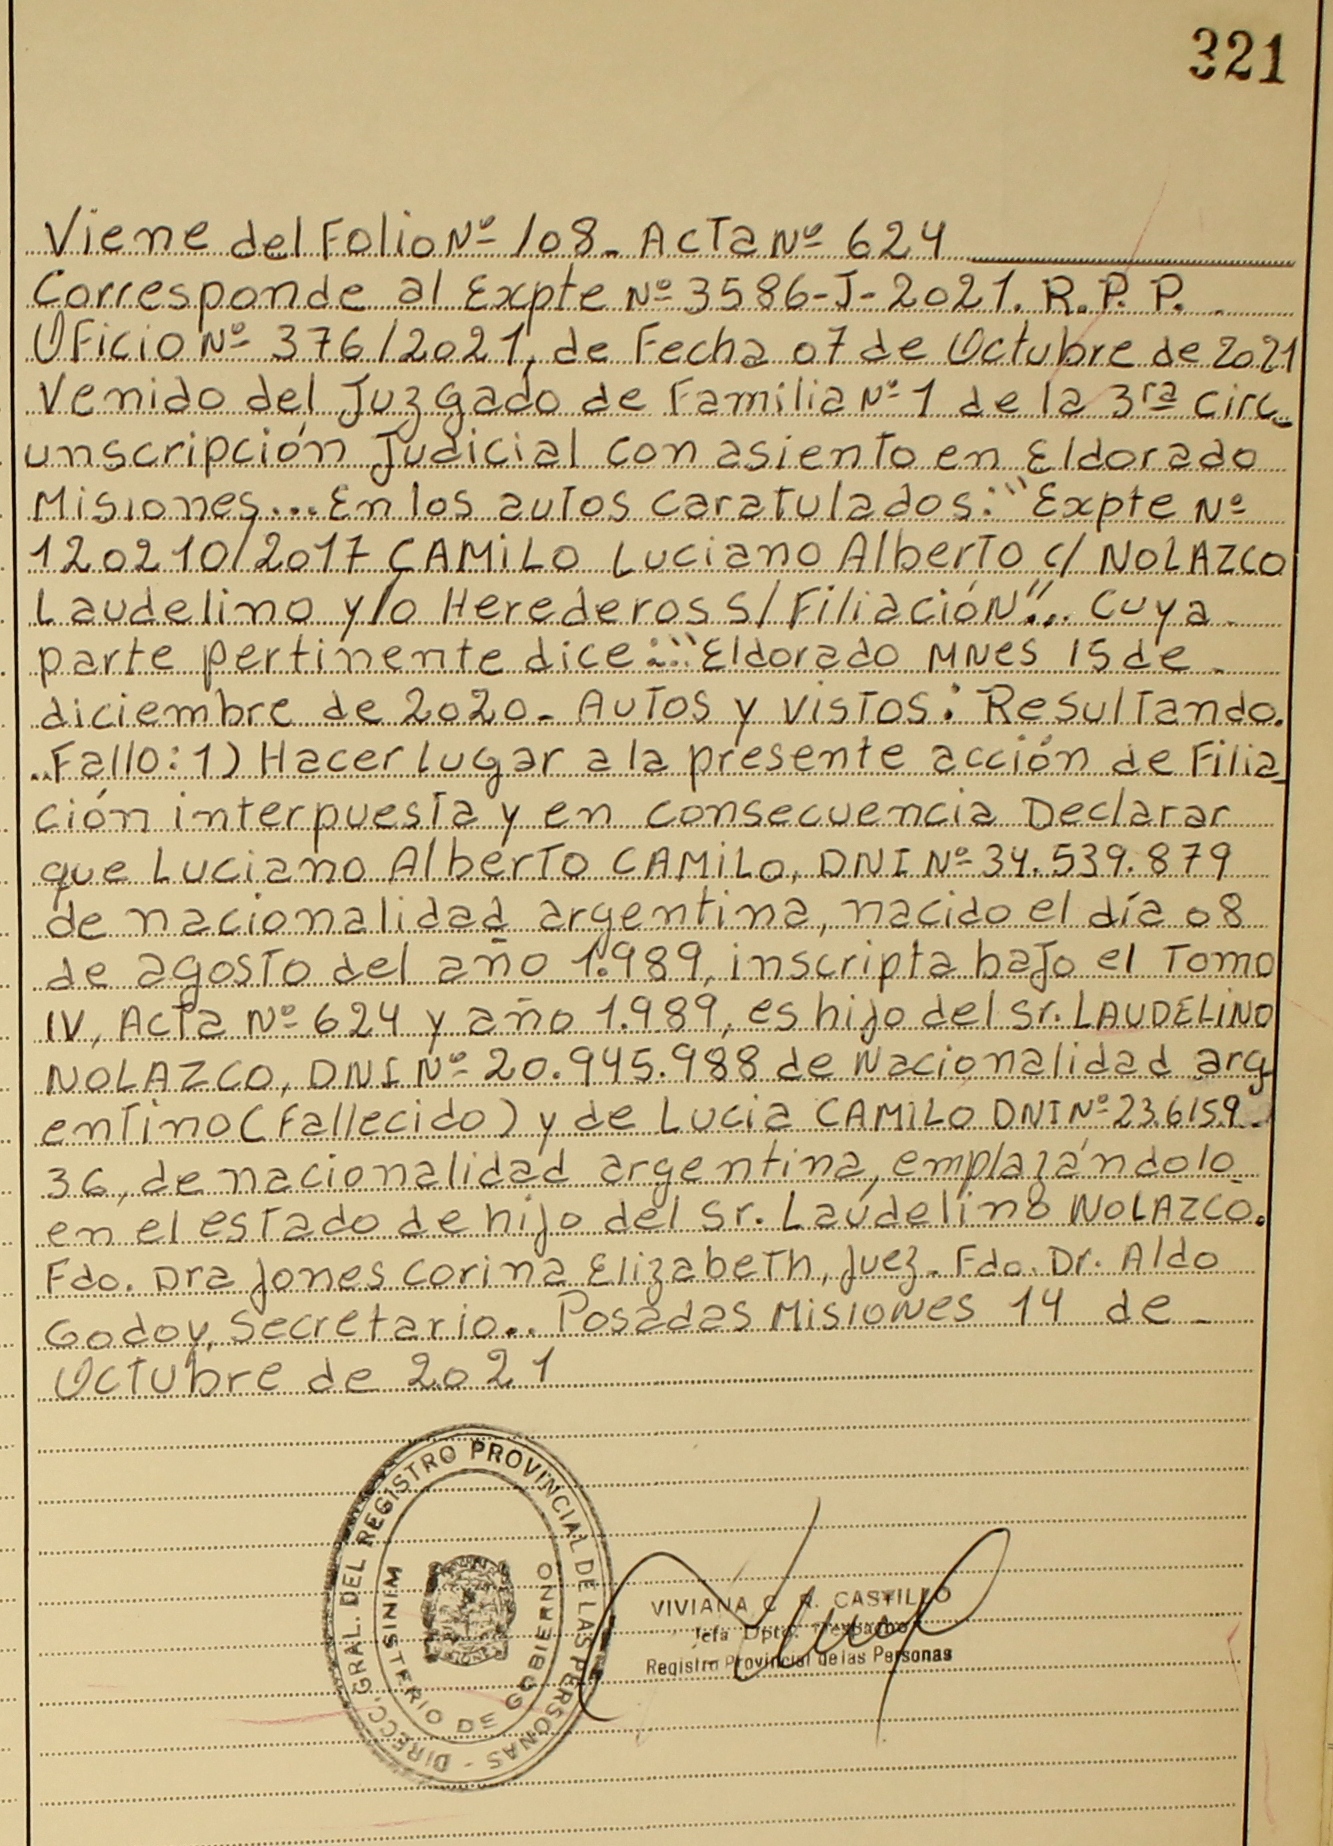 321
Viene del Folio Nº 108- Acta Nº 624
Corresponde al Expte Nº 3586-J-2021. R.P.P.
Oficio Nº 376/2021, de Fecha 07 de Octubre de 2021
Venido del Juzgado de Familia Nº 1 de la 3ra circ-
unscripción Judicial con asiento en Eldorado
Misiones... En los autos caratulados: "Expte Nº
120210/2017 CAMILO Luciano Alberto c/ NOLAZCO
Laudelino y/o Herederos s/ Filiación"... Cuya
parte pertinente dice:..."Eldorado MNES 15 de
diciembre de 2020- Autos y vistos: Resultando.
..Fallo: 1) Hacer lugar a la presente acción de Filia
ción interpuesta y en consecuencia Declarar
que Luciano Alberto CAMILO, DNI Nº 34.539.879
de nacionalidad argentina, nacido el día 08
de agosto del año 1.989, inscripta bajo el Tomo
IV, Acta Nº 624 y año 1.989, es hijo del Sr. LAUDELINO
NOLAZCO, DNI Nº 20.945.988 de Nacionalidad arg
entino (Fallecido) y de Lucia CAMILO DNI Nº 23.615.9-
36, de nacionalidad argentina, emplazándolo
en el estado de hijo del Sr. Laudelino NOLAZCO.
Fdo. Dra Jones Corina Elizabeth, Juez- Fdo. Dr. Aldo
Godoy, Secretario.. Posadas Misiones 14 de
Octubre de 2021
DIRECC. GRAL. DEL REGISTRO PROVINCIAL DE LAS PERSONAS -
MINISTERIO DE GOBIERNO
VIVIANA C. R. CASTILLO
Jefa Dpto. Despacho
Registro Provincial de las Personas